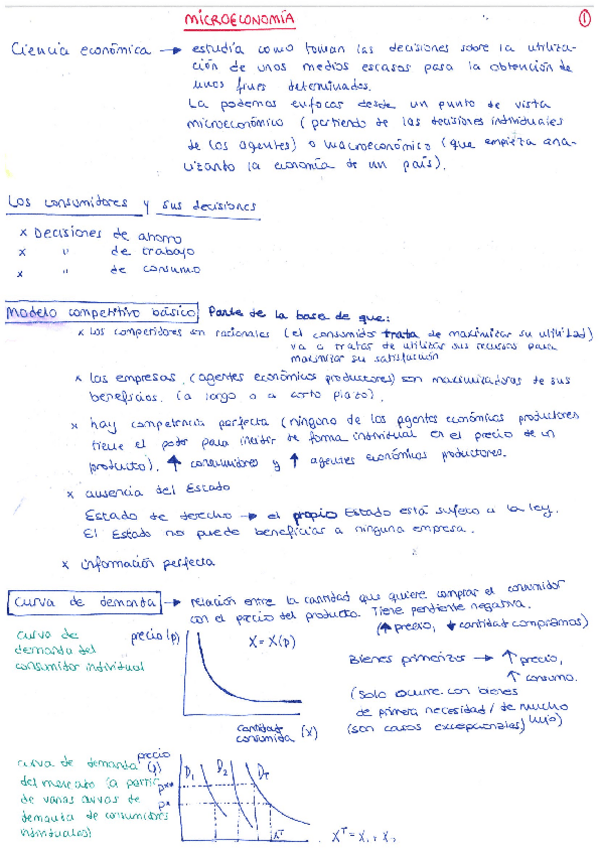 MICROECONOMÍA
1
Ciencia económica → estudia como toman las decisiones sobre la utiliza-
ción de unos medios escasos para la obtención de
unos fines determinados.
La podemos enfocar desde un punto de vista
microeconómico (partiendo de las decisiones individuales
de los agentes) o macroeconómico (que empieza ana-
lizanto la economía de un país).
Los consumidores y sus decisiones
x Decisiones de ahorro
x " de trabajo
x " de consumo
Modelo competitivo básico Parte de la base de que:
x Los competidores son racionales (el consumidor trata de maximizar su utilidad)
va a tratar de utilizar sus recursos para
maximizar su satisfacción
x las empresas (agentes económicos productores) son maximizadoras de sus
beneficios. (a largo o a corto plazo).
x hay competencia perfecta (ninguno de los agentes económicos productores
tiene el poder para incidir de forma individual en el precio de un
producto). ↑ consumidores y ↑ agentes económicos productores.
x ausencia del Estado
Estado de derecho → el propio Estado está sujeto a la ley.
El Estado no puede beneficiar a ninguna empresa.
x información perfecta
curva de demanda → relación entre la cantidad que quiere comprar el consumidor
con el precio del producto. Tiene pendiente negativa.
(↑ precio, ↓ cantidad compramos)
curva de
demanda del
consumidor individual
precio (p)
X = X(p)
cantidad
consumida (X)
Bienes primerizos → ↑ precio,
↑ consumo.
(Solo ocurre con bienes
de primera necesidad / de mucho
lujo)
(son casos excepcionales)
curva de demanda
del mercado (a partir
de varias curvas de
demanda de consumidores
individuales)
precio
(p)
p**
p*
D₁ D₂ D_T
X^T
X^T = X₁ + X₂